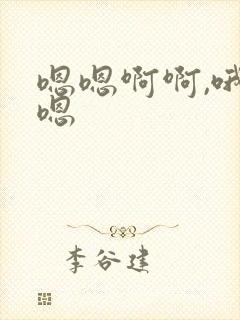 嗯嗯啊啊,哦
嗯
李谷建